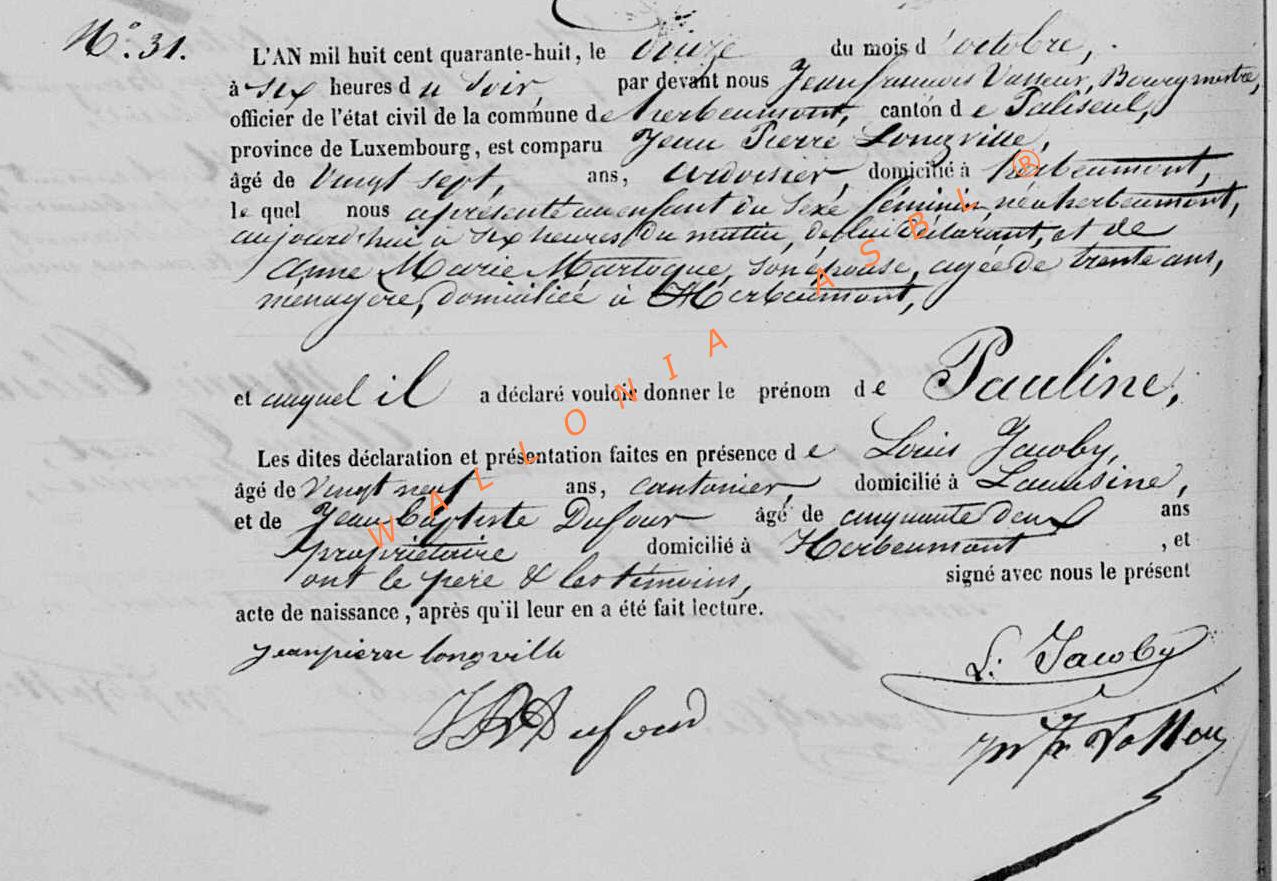 N.° 31.
L'AN mil huit cent quarante-huit, le onze du mois d'octobre,
à six heures du soir, par devant nous Jeanfrancois Vasseur, Bourgmestre,
officier de l'état civil de la commune de herbeumont, canton de Paliseul,
province de Luxembourg, est comparu Jean Pierre Longville,
âgé de Vingt sept, ans, ardoisier, domicilié à herbeumont,
lequel nous a présenté un enfant du sexe féminin, né a herbeumont,
aujourd'hui à six heures du matin, de lui déclarant, et de
Anne Marie Martoque, son épouse, agée de trente ans,
ménagère, domiciliée à Herbeumont,
et auquel il a déclaré vouloir donner le prénom de Pauline,
Les dites déclaration et présentation faites en présence de Louis Jacoby,
âgé de Vingt neuf ans, cantonier, domicilié à
et de Jean Baptiste Dufour âgé de cinquante deux ans
propriétaire domicilié à Herbeumont, et
ont le père & les témoins, signé avec nous le présent
acte de naissance, après qu'il leur en a été fait lecture.
jeanpierre longville
L. Jacoby
JB Dufour
WALLONIA ASBL ®